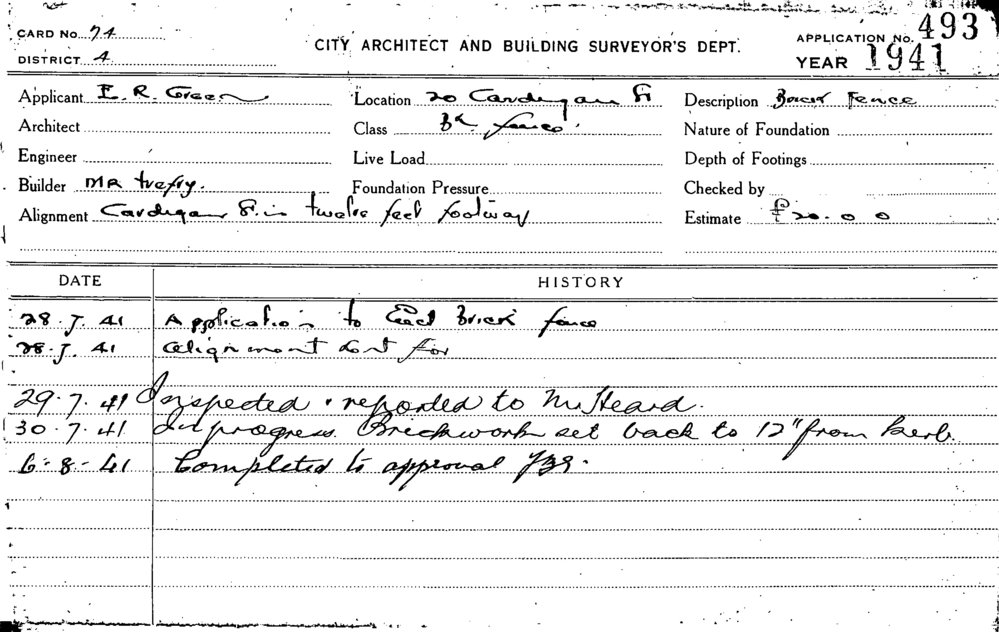 CARD No. 74
DISTRICT 4
CITY ARCHITECT AND BUILDING SURVEYOR'S DEPT.
APPLICATION No. 493
YEAR 1941
Applicant E. R. Green
Location 20 Cardigan St
Description Brick Fence
Architect
Class Bk fence.
Nature of Foundation
Engineer
Live Load
Depth of Footings
Builder MR trefry.
Foundation Pressure
Checked by
Alignment Cardigan St. in twelve feet footway
Estimate £20.0 0
DATE
HISTORY
28.7.41 Application to Erect Brick fence
28.7.41 alignment for
29.7.41 Inspected & reported to Mr Heard.
30.7.41 In progress. Brickwork set back to 12" from kerb.
6-8-41 Completed to approval